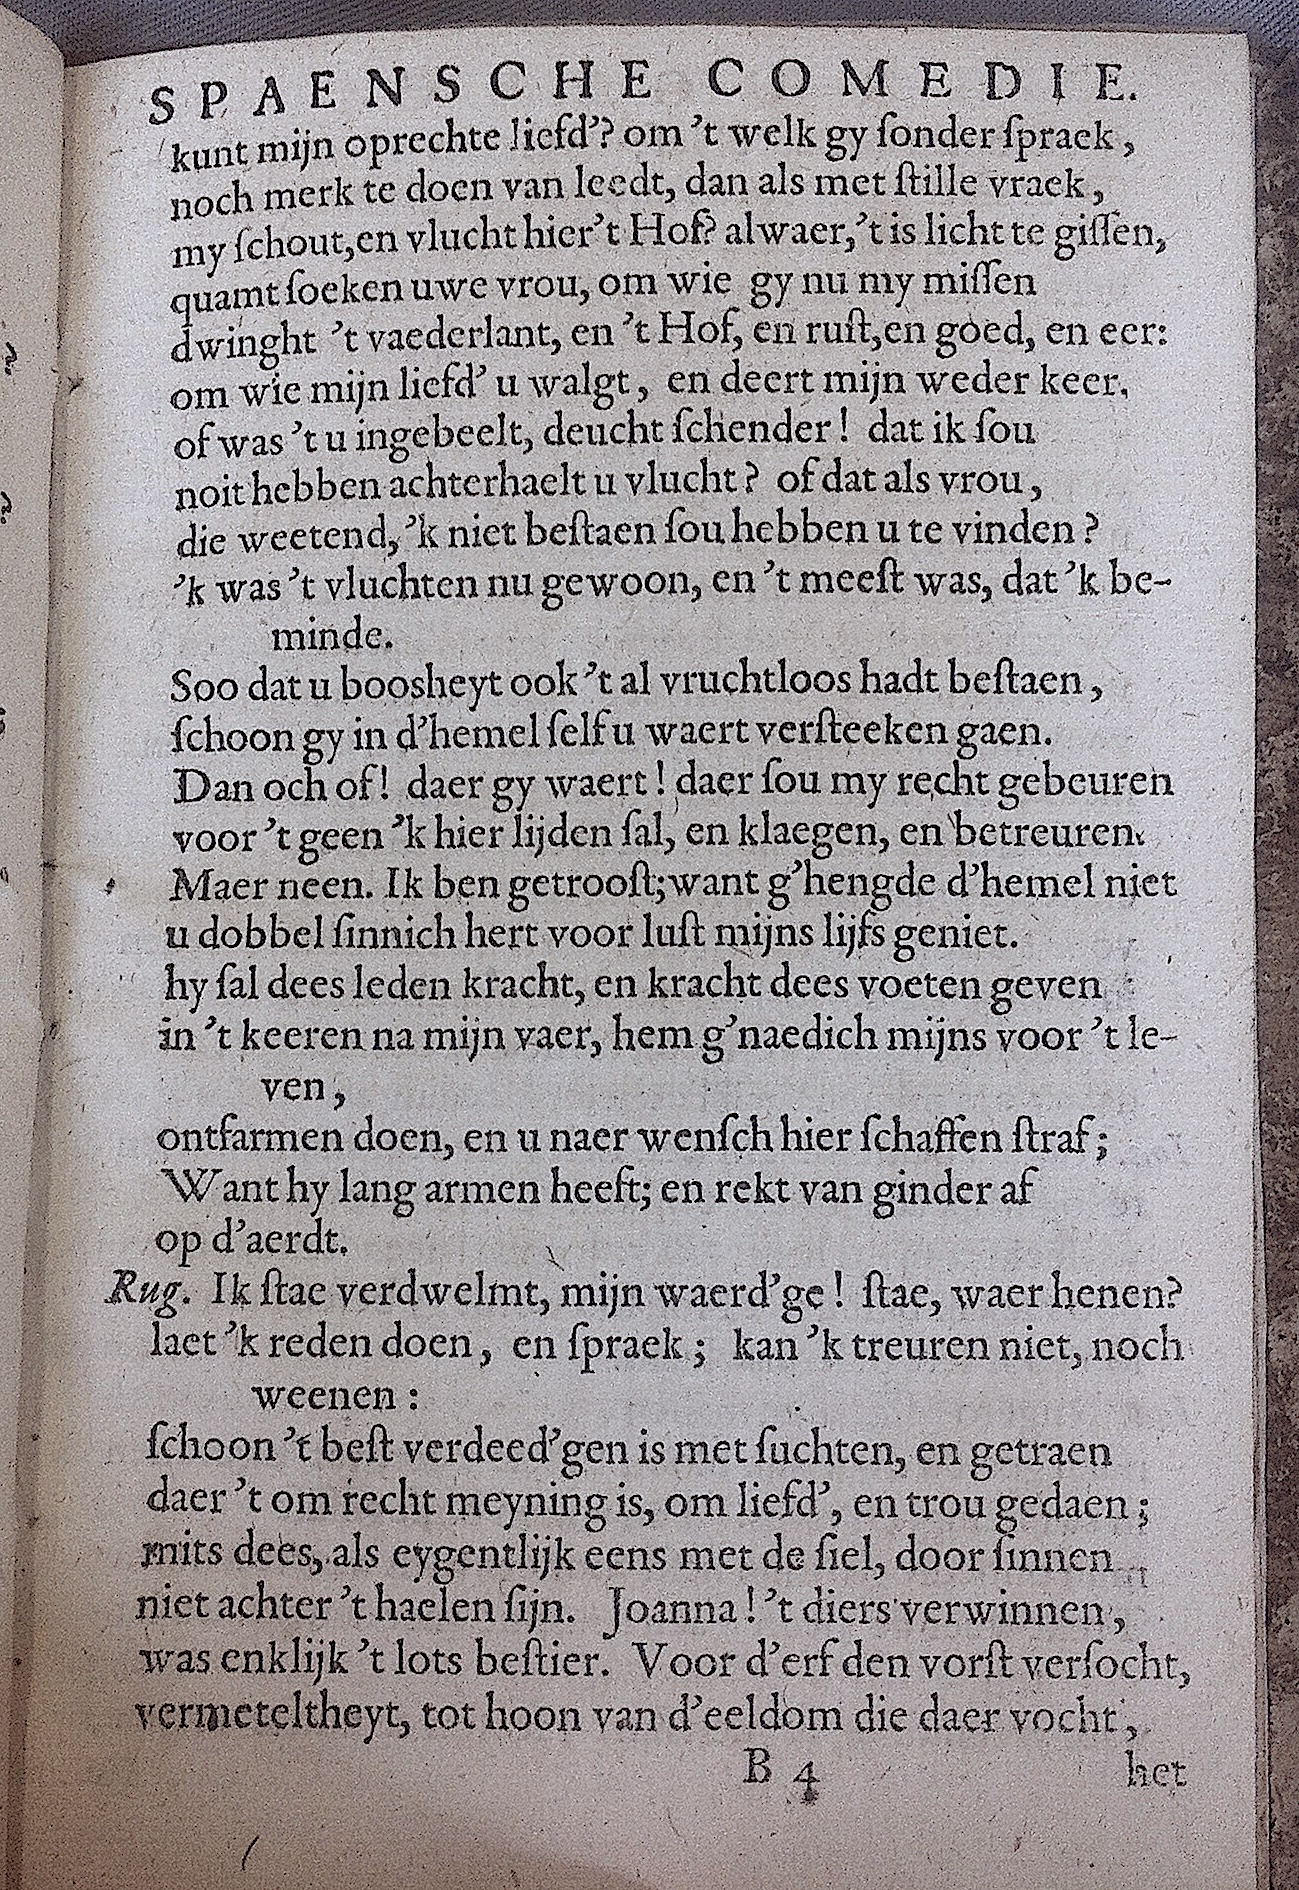 SPAENSCHE COMEDIE.
kunt mijn oprechte liefd’? om ’t welk gy ſonder ſpraek,
noch merk te doen van leedt, dan als met ſtille vraek,
my ſchout,en vlucht hier’t Hof? alwaer,’t is licht te giſſen,
quamt ſoeken uwe vrou, om wie gy nu my miſſen
dwinght ’t vaederlant, en ’t Hof, en ruſt,en goed, en eer:
om wie mijn liefd’ u walgt, en deert mijn weder keer.
of was ’t u ingebeelt, deucht ſchender! dat ik ſou
noit hebben achterhaelt u vlucht? of dat als vrou,
die weetend, ’k niet beſtaen ſou hebben u te vinden?
’k was ’t vluchten nu gewoon, en ’t meeſt was, dat ’k be-
minde.
Soo dat u boosheyt ook ’t al vruchtloos hadt beſtaen,
ſchoon gy in d’hemel ſelf u waert verſteeken gaen.
Dan och of! daer gy waert! daer ſou my recht gebeuren
voor ’t geen ’k hier lijden ſal, en klaegen, en betreuren.
Maer neen. Ik ben getrooſt; want g’hengde d’hemel niet
u dobbel ſinnich hert voor luſt mijns lijfs geniet.
hy ſal dees leden kracht, en kracht dees voeten geven
in ’t keeren na mijn vaer, hem g’naedich mijns voor ’t le-
ven,
ontfarmen doen, en u naer wenſch hier ſchaffen ſtraf;
Want hy lang armen heeft; en rekt van ginder af
op d’aerdt.
Rug. Ik ſtae verdwelmt, mijn waerd’ge! ſtae, waer henen?
laet ’k reden doen, en ſpraek; kan ’k treuren niet, noch
weenen:
ſchoon ’t beſt verdeed’gen is met ſuchten, en getraen
daer ’t om recht meyning is, om liefd’, en trou gedaen;
mits dees, als eygentlijk eens met de ſiel, door ſinnen
niet achter ’t haelen ſijn. Joanna! ’t diers verwinnen,
was enklijk ’t lots beſtier. Voor d’erf den vorſt verſocht,
vermeteltheyt, tot hoon van d’eeldom die daer vocht,
B 4 het